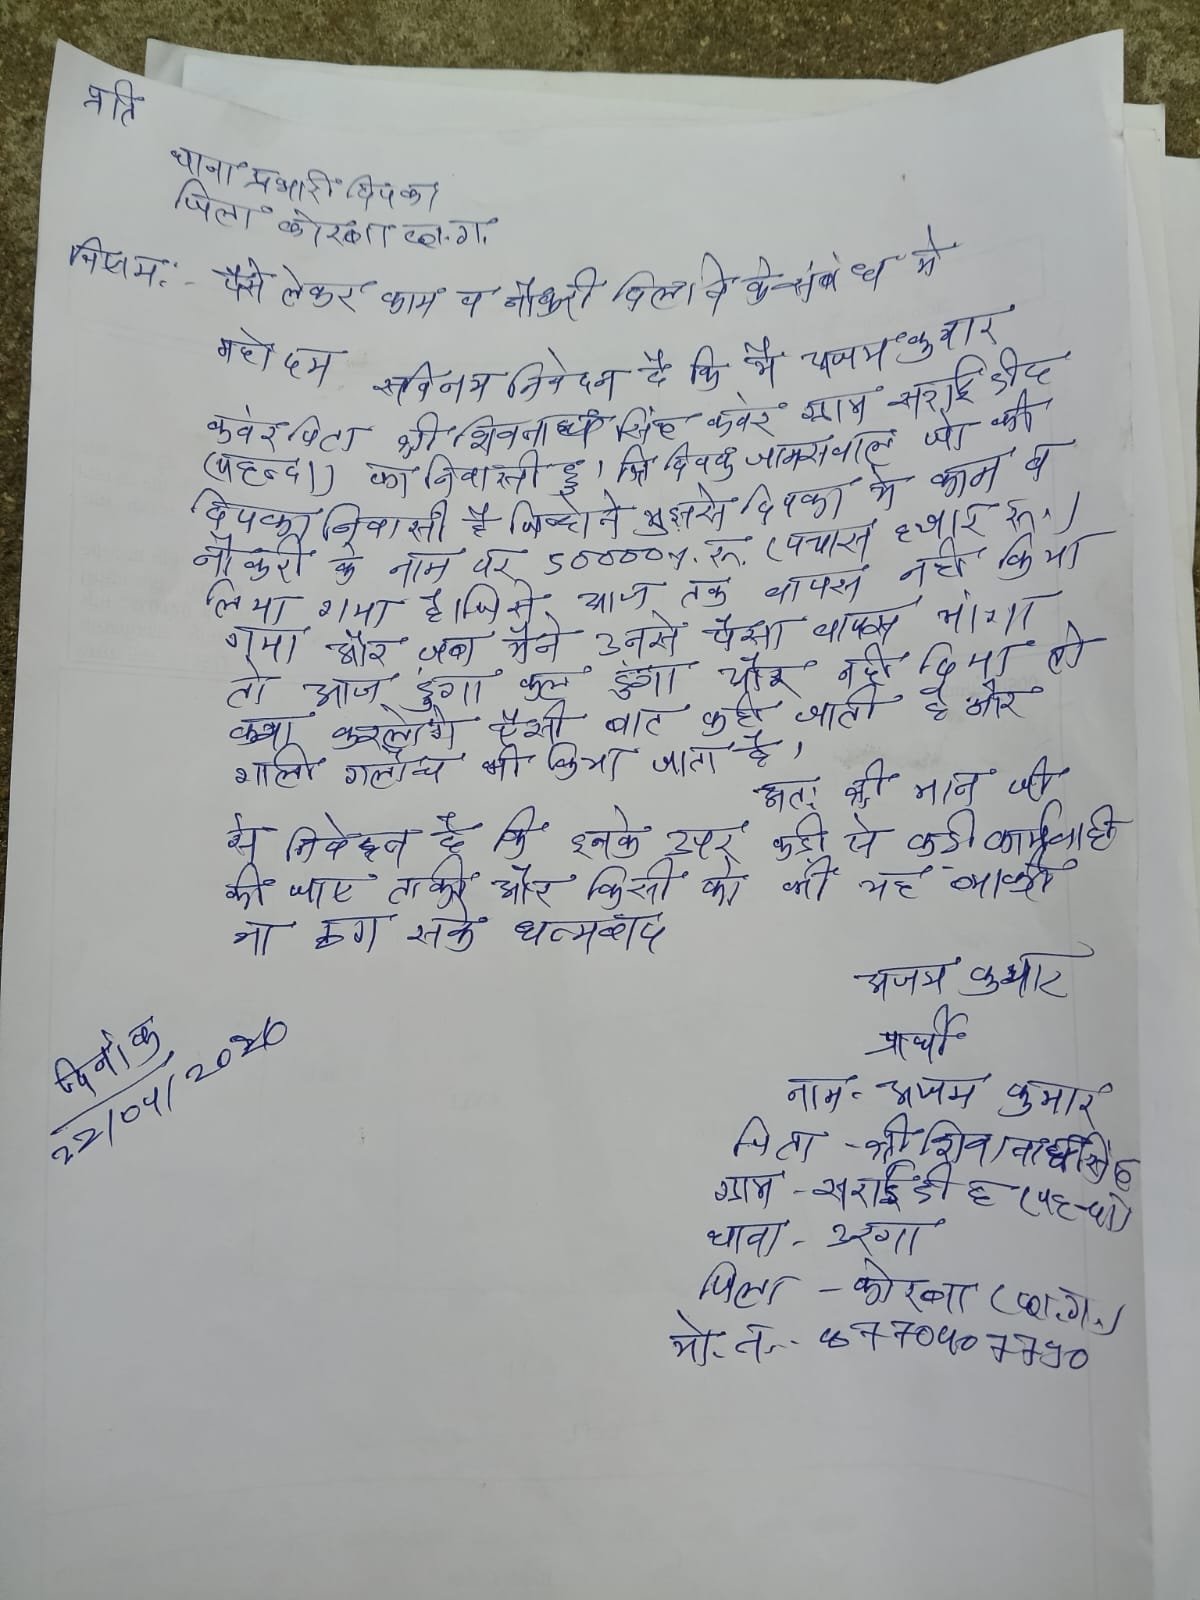 प्रति
थाना प्रभारी दिपका
जिला कोरबा छ.ग.
विषय:- पैसे लेकर काम व नौकरी दिलाने के संबंध मे
महोदय
सविनय निवेदन है कि मै अजय कुमार
कंवर पिता श्री शिवनाथ सिंह कंवर ग्राम सराईडीह
(पहन्दा) का निवासी हु। कि दिपक जायसवाल जो की
दिपका निवासी है जिन्होने मुझसे दिपका मे काम व
नौकरी के नाम पर 50000/. रू. (पचास हजार रू.)
लिया गया है। जिसे आज तक वापस नही किया
गया और जब मैने उनसे पैसा वापस मांगा
तो आज दुंगा कल दुंगा और नही दिया तो
क्या करलोगे ऐसी बात कही जाती है और
गाली गलौच भी किया जाता है।
अतः श्री मान जी
से निवेदन है कि इनके उपर कड़ी से कड़ी कार्यवाही
की जाए ताकी और किसी को भी यह व्यक्ति
ना ठग सके धन्यवाद
अजय कुमार
प्रार्थी
दिनांक
22/04/2020
नाम - अजय कुमार
पिता - श्री शिवनाथ सिंह
ग्राम - सराईडीह (पहन्दा)
थाना - उरगा
जिला - कोरबा (छ.ग.)
मो. न.-